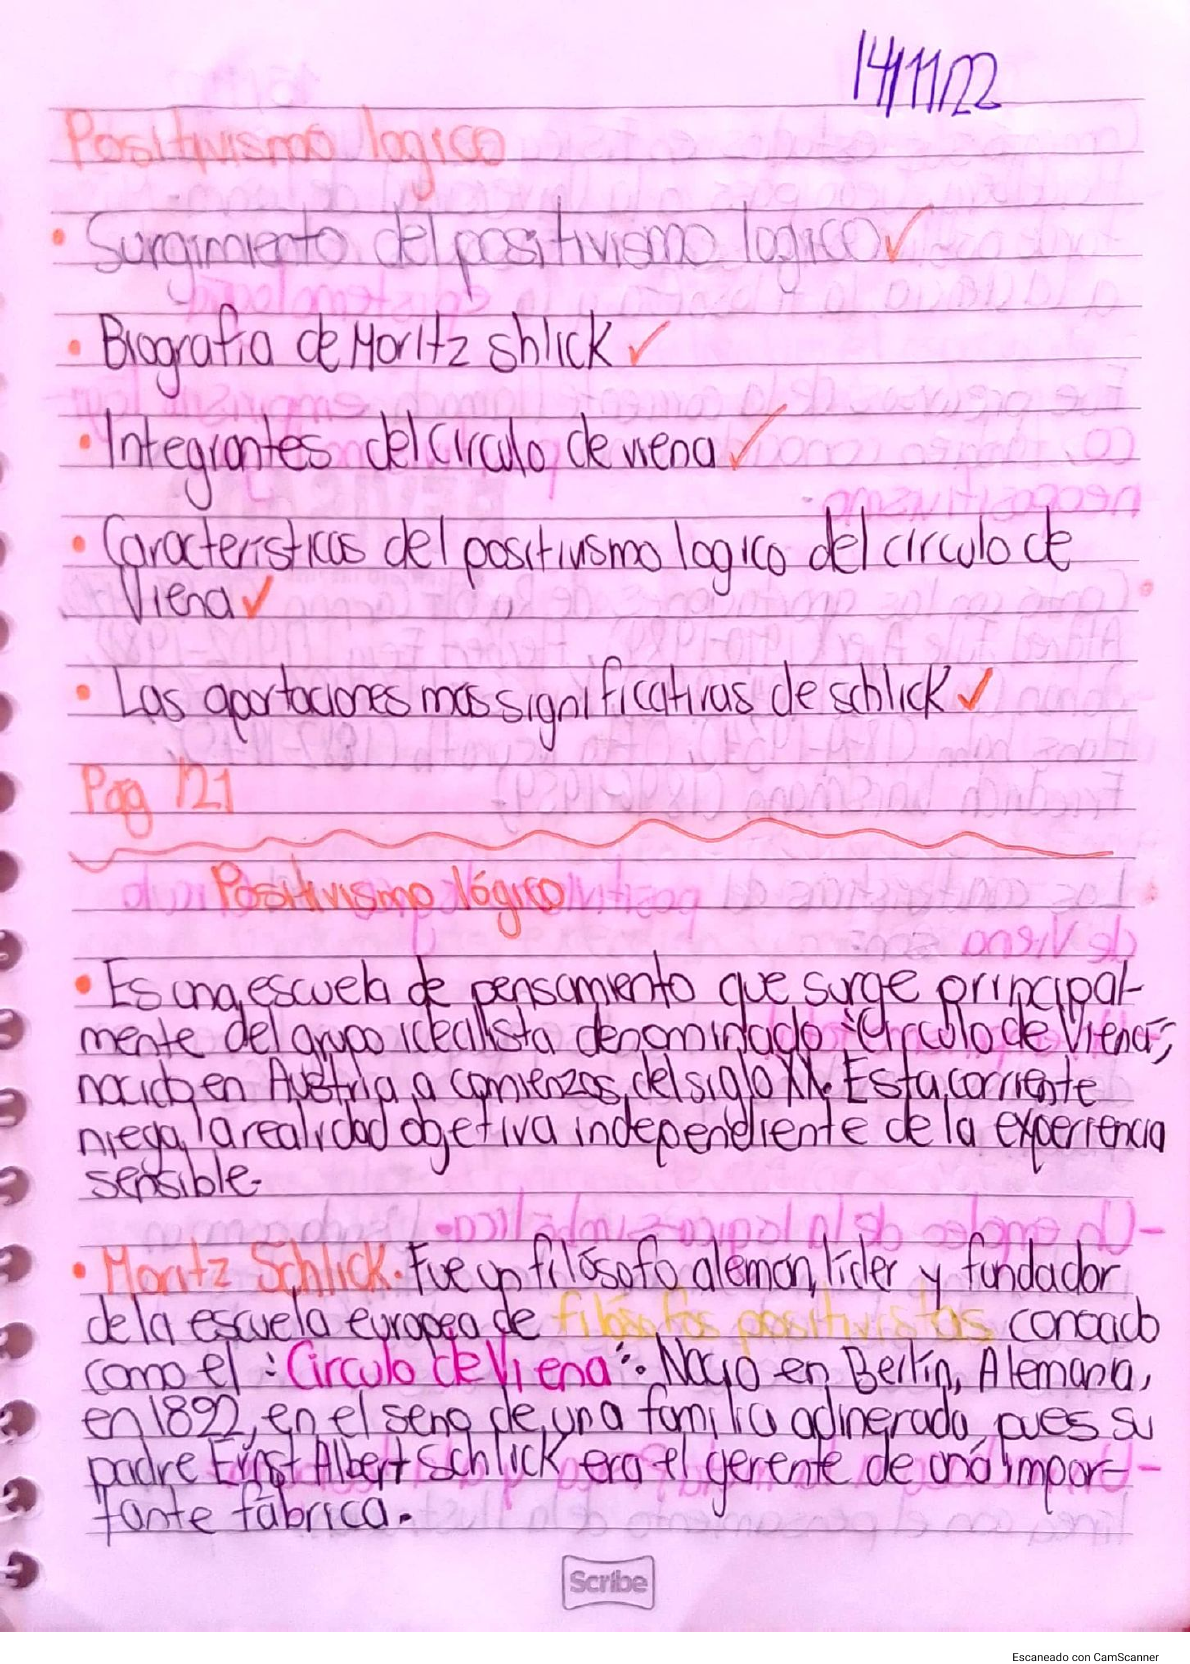 14/11/22
Positivismo logico
• Surgimiento del positivismo logico ✓
• Biografia de Moritz Shlick ✓
• Integrantes del Circulo de viena ✓
• Caracteristicas del positivismo logico del circulo de
Viena ✓
• Las aportaciones mas significativas de schlick ✓
Pag 121
Positivismo lógico
• Es una escuela de pensamiento que surge principal-
mente del grupo idealista denominado "Circulo de Viena",
nacido en Austria a comienzos del siglo XX. Esta corriente
niega la realidad objetiva independiente de la experiencia
sensible.
• Moritz Schlick. Fue un filósofo alemán, líder y fundador
de la escuela europea de filósofos positivistas conocido
como el "Circulo de Viena". Nació en Berlín, Alemania,
en 1892, en el seno de una familia adinerada, pues su
padre Ernst Albert Schlick era el gerente de una impor-
tante fábrica.
Scribe
Escaneado con CamScanner